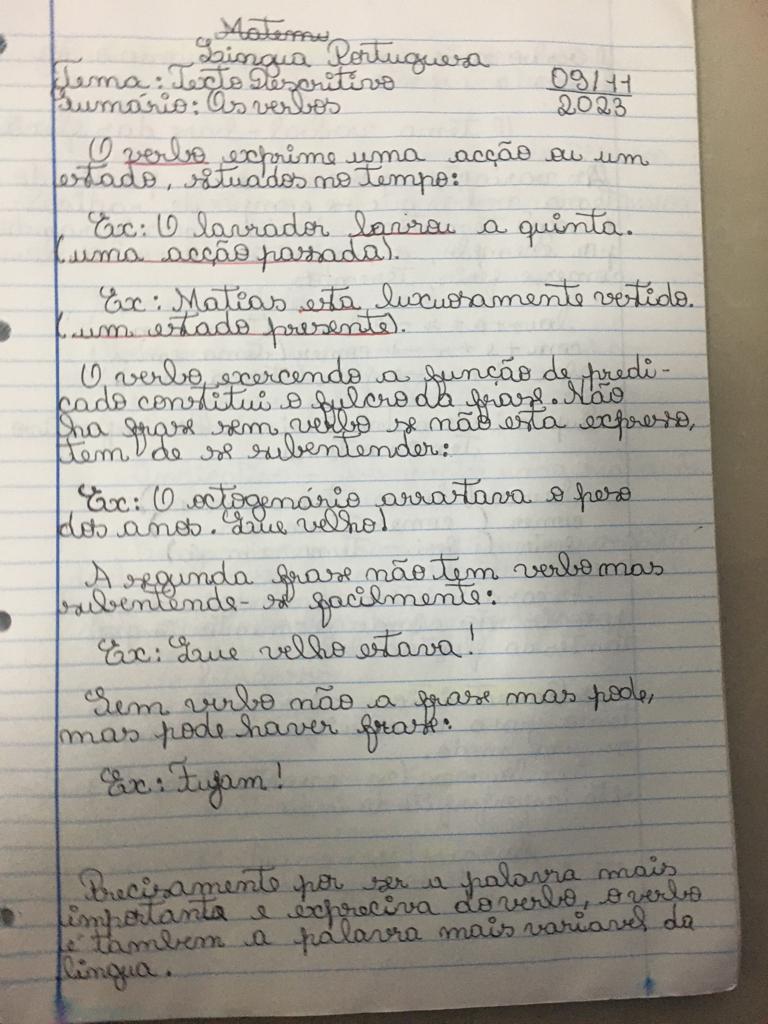 Matems
Língua Portuguesa
Tema: Texto Descritivo 09/11
Sumário: Os verbos 2023
O verbo exprime uma acção ou um
estado, situados no tempo:
Ex: O lavrador lavrou a quinta.
(uma acção passada).
Ex: Matias esta luxuosamente vestido.
(um estado presente).
O verbo, exercendo a função de predi-
cado constitui o fulcro da frase. Não
ha frase sem verbo se não esta expresso,
tem de se subentender:
Ex: O octogenário arrastava o peso
dos anos. Que velho!
A segunda frase não tem verbo mas
subentende-se facilmente:
Ex: Que velho estava!
Sem verbo não a frase mas pode,
mas pode haver frase:
Ex: Fujam!
Precisamente por ser a palavra mais
importanta e expreciva do verbo, o verbo
é tambem a palavra mais variavel da
lingua.